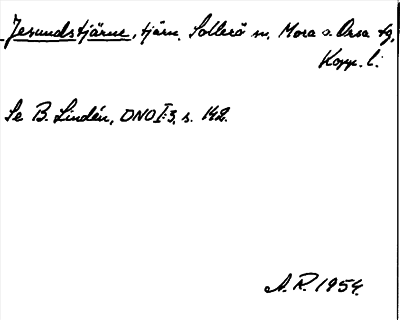 Jesundstjärne, tjärn. Sollerö sn, Mora o. Orsa tg,
Kopp. l.
Se B. Lindén, DNO I:3, s. 142.
A. R. 1954.